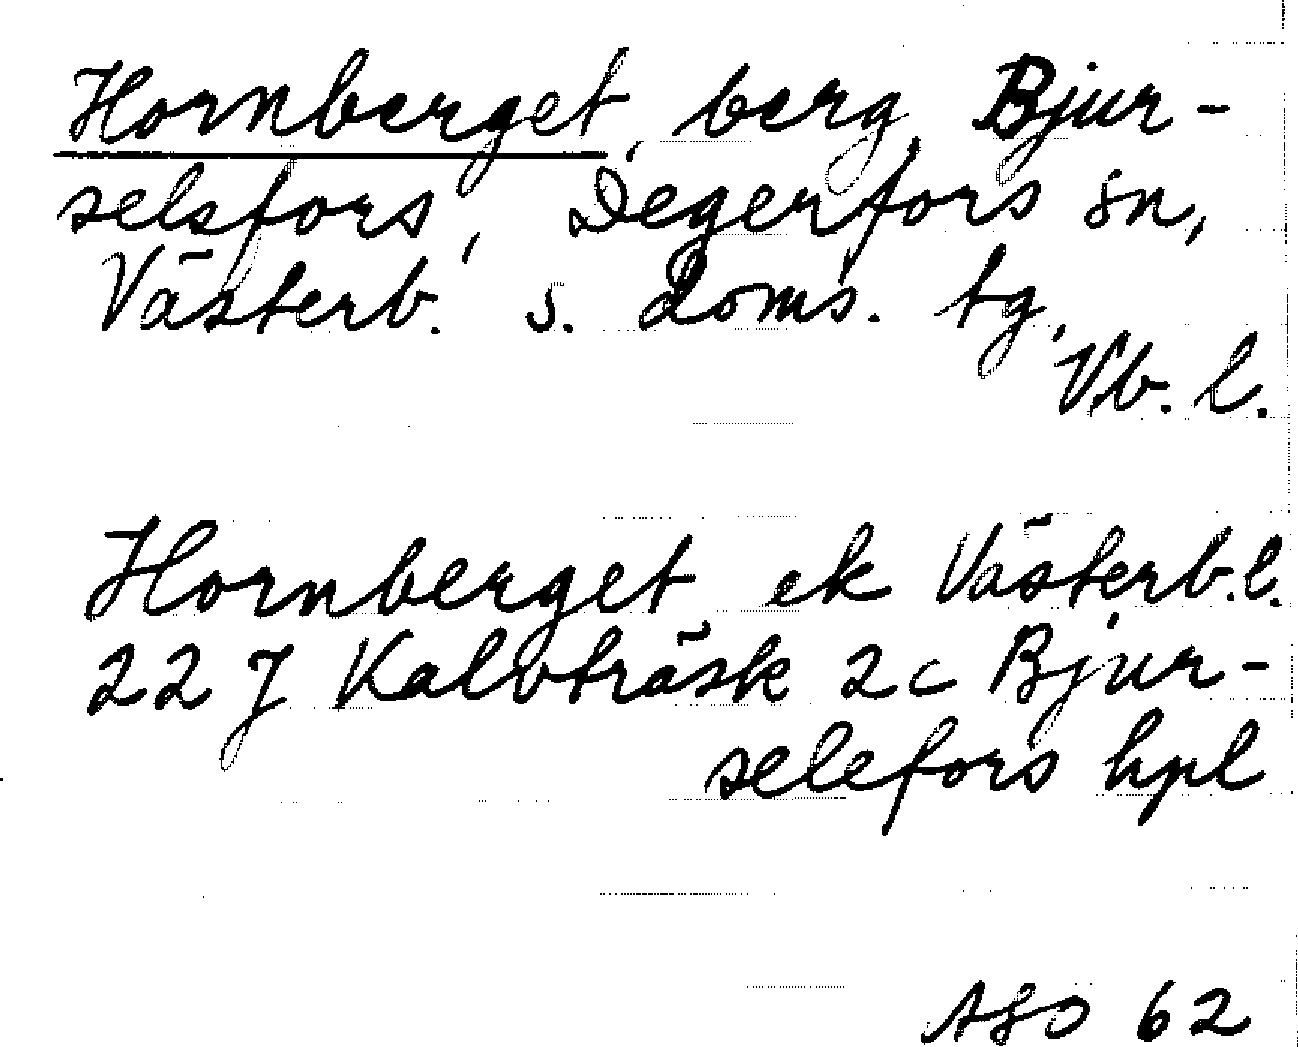 Hornberget, berg, Bjur-
selsfors, Degerfors sn,
Västerb. s. doms. tg,
Vb. l.
Hornberget ek Västerb.l.
22 J Kalvträsk 2c Bjur-
selefors hpl
ASO 62